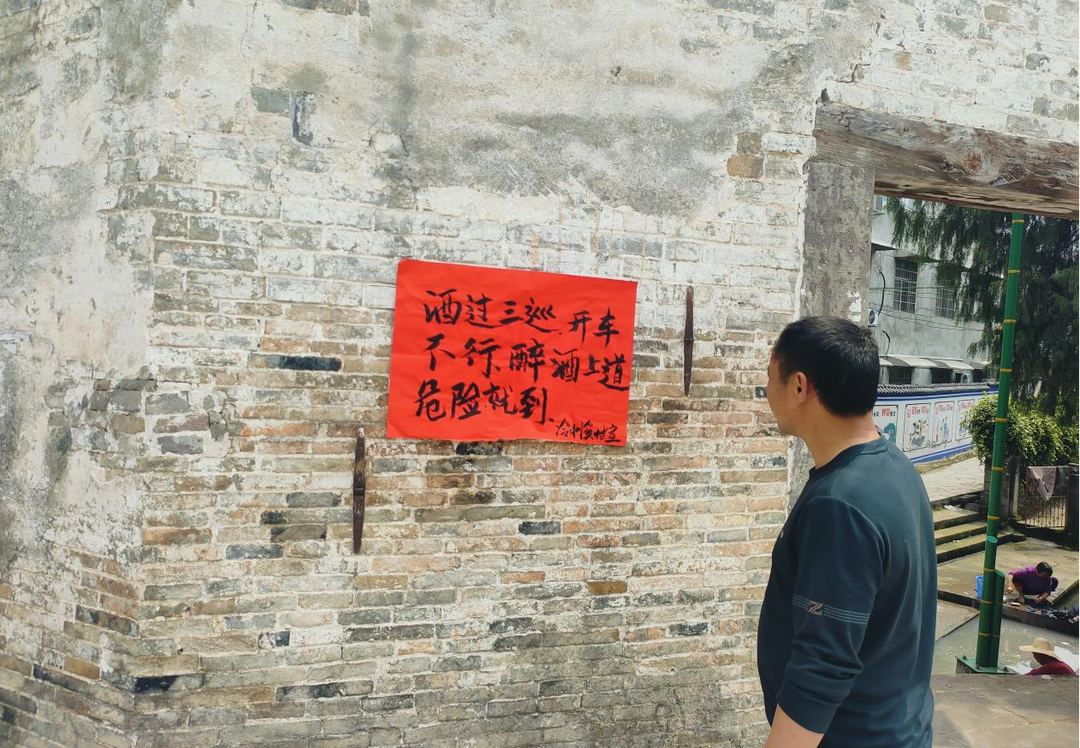 酒过三巡、开车
不行、醉酒上道
危险就到.
冷水溪村宣